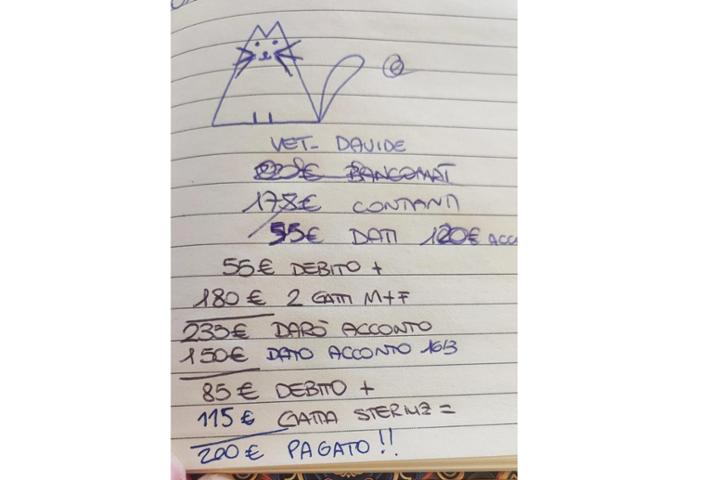 VET- DAVIDE
BANCOMAT
175€ CONTANTI
55€ DATI 120€ ACC
55€ DEBITO +
180€ 2 GATTI M+F
235€ DARÒ ACCONTO
150€ DATO ACCONTO 16/3
85€ DEBITO +
115€ GATTA STERILIZ =
200€ PAGATO!!